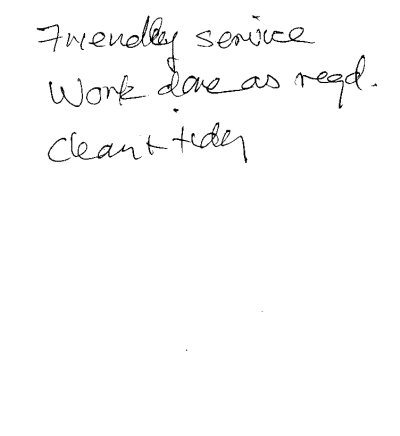 Friendly service
Work done as reqd.
Clean + tidy